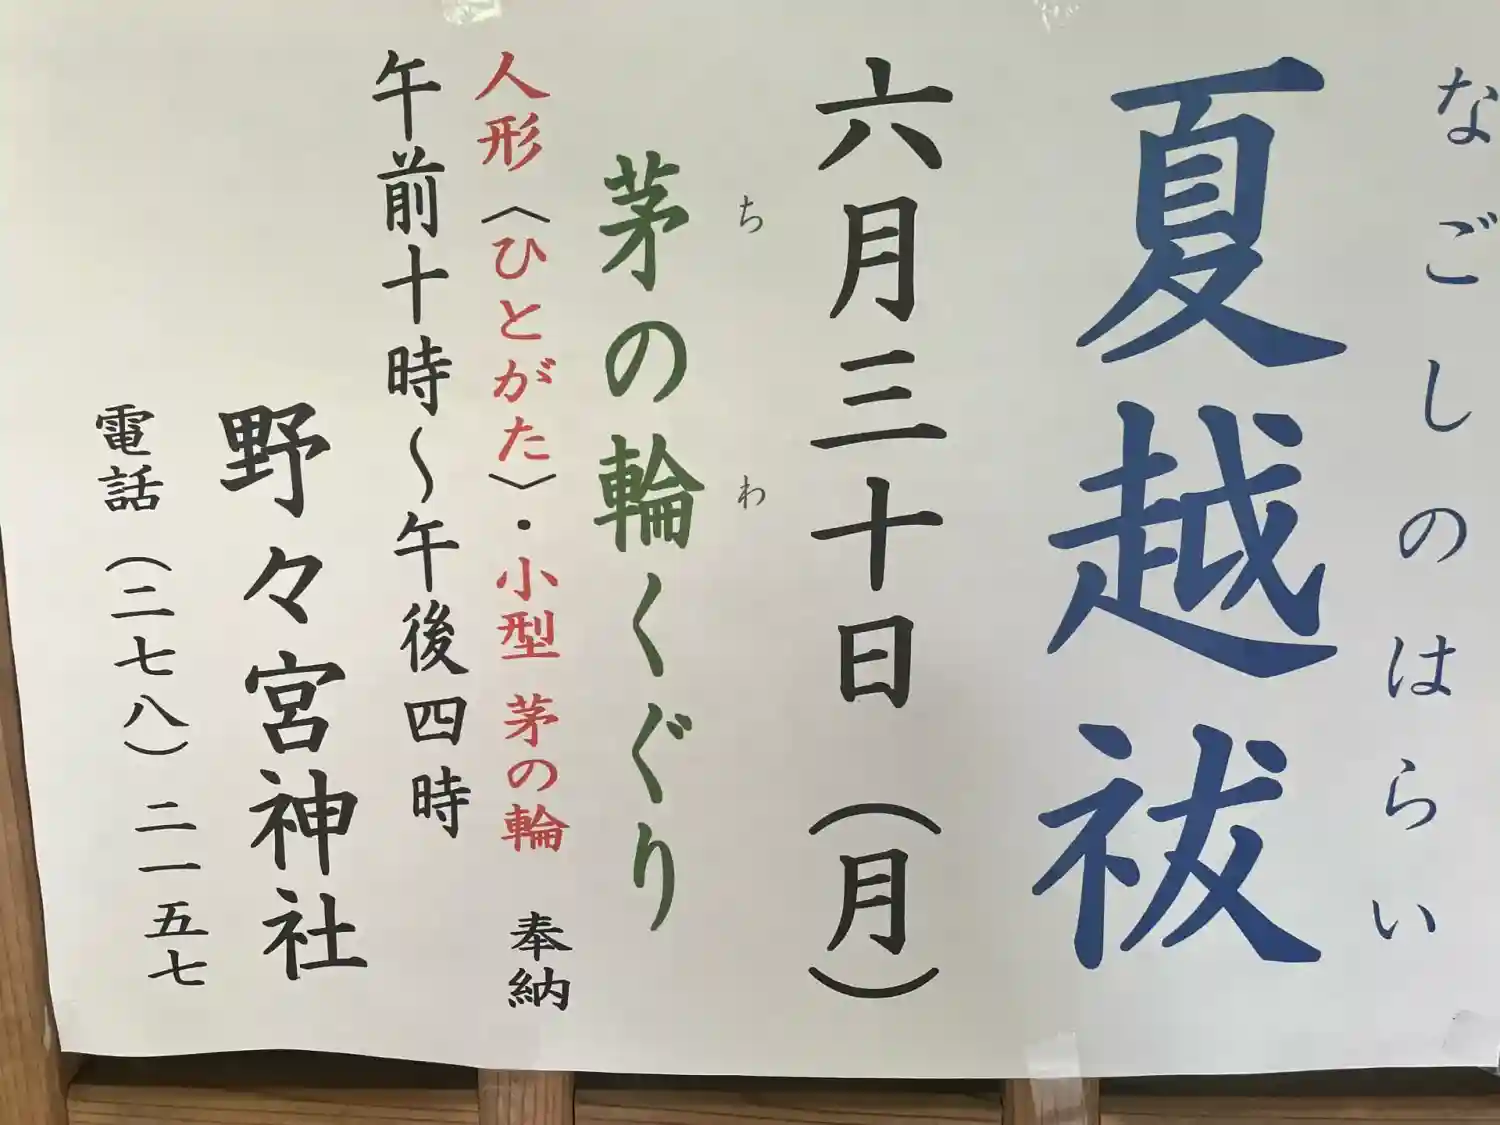 なごしのはらい
夏越祓
六月三十日（月）
ち わ
茅の輪くぐり
人形〈ひとがた〉・小型 茅の輪 奉納
午前十時～午後四時
野々宮神社
電話（二七八）二一五七